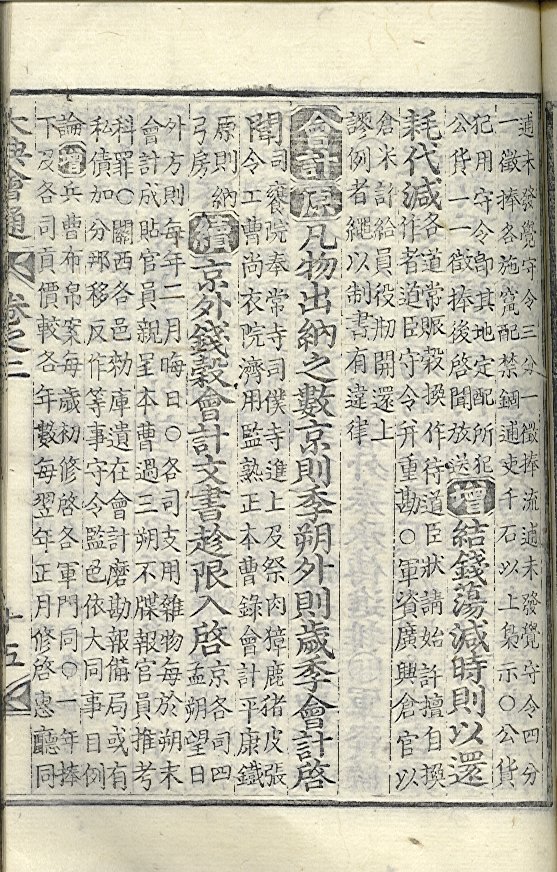 逋未發覺守令三分一徵捧流逋未發覺守令四分
一徵捧各施當配禁錮逋吏千石以上梟示○公貨
犯用守令卽其地定配所犯
公貨一一徵捧後啓聞放送
增結錢蕩減時則以還
耗代減
各道常賑穀換作待道臣狀請始許擅自換
作者道臣守令幷重勘○軍資廣興倉官以
倉米計給員役刱開還上
謬例者繩以制書有違律
會計
原凡物出納之數京則季朔外則歲季會計啓
聞
司饔院奉常寺司僕寺進上及祭肉獐鹿猪皮張
令工曹尚衣院濟用監熟正本曹錄會計平康鐵
原則納
弓房
續京外錢穀會計文書趁限入啓
京各司四
孟朔望日
外方則每年二月晦日○各司支用雜物每於朔末
會計成貼官員親呈本曹過三朔不牒報官員推考
科罪○關西各邑勑庫遺在會計磨勘報備局或有
私債加分那移反作等事守令監色依大同事目例
論增兵曹布帛案每歲初修啓各軍門同○一年捧
下及各司貢價較各年數每翌年正月修啓惠廳同
大典會通 卷之二
十五